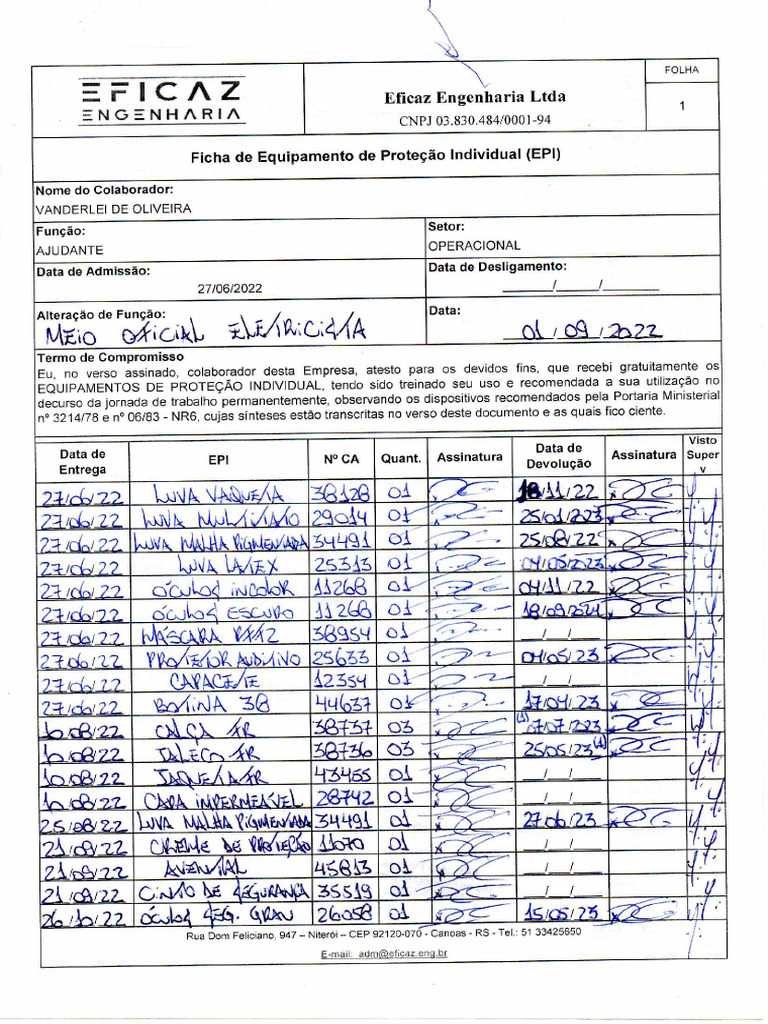 EFICAZ
ENGENHARIA
Eficaz Engenharia Ltda
CNPJ 03.830.484/0001-94
FOLHA
1
Ficha de Equipamento de Proteção Individual (EPI)
Nome do Colaborador:
VANDERLEI DE OLIVEIRA
Função:
AJUDANTE
Setor:
OPERACIONAL
Data de Admissão:
27/06/2022
Data de Desligamento:
___/___/___
Alteração de Função:
MEIO OFICIAL ELETRICISTA
Data:
01/09/2022
Termo de Compromisso
Eu, no verso assinado, colaborador desta Empresa, atesto para os devidos fins, que recebi gratuitamente os
EQUIPAMENTOS DE PROTEÇÃO INDIVIDUAL, tendo sido treinado seu uso e recomendada a sua utilização no
decurso da jornada de trabalho permanentemente, observando os dispositivos recomendados pela Portaria Ministerial
nº 3214/78 e nº 06/83 - NR6, cujas sínteses estão transcritas no verso deste documento e as quais fico ciente.
Data de Entrega EPI Nº CA Quant. Assinatura Data de Devolução Assinatura Visto Super v
27/06/22 LUVA VAQUETA 38128 01 18/11/22
27/06/22 LUVA MULTITATO 29014 01 25/01/2023
27/06/22 LUVA MALHA PIGMENTADA 34491 01 25/08/22
27/06/22 LUVA LATEX 25313 01 04/05/2023
27/06/22 ÓCULOS INCOLOR 11268 01 04/11/22
27/06/22 ÓCULOS ESCURO 11268 01 18/09/2024
27/06/22 MÁSCARA PFF2 38954 01 _/_/_
27/06/22 PROTETOR AUDITIVO 25633 01 04/05/23
27/06/22 CAPACETE 12354 01 _/_/_
27/06/22 BOTINA 38 44637 01 17/04/23
10/08/22 CALÇA FR 38737 03 (1) 07/07/2023
10/08/22 JALECO FR 38736 03 25/05/23 (1)
10/08/22 JAQUETA FR 43455 01 _/_/_
10/08/22 CAPA IMPERMEÁVEL 28742 01 _/_/_
25/08/22 LUVA MALHA PIGMENTADA 34491 01 27/06/23
21/09/22 CREME DE PROTEÇÃO 11070 01 _/_/_
21/09/22 AVENTAL 45813 01 _/_/_
21/09/22 CINTO DE SEGURANÇA 35519 01 _/_/_
26/10/22 ÓCULOS SEG. GRAU 26058 01 15/05/23
Rua Dom Feliciano, 947 – Niterói – CEP 92120-070 - Canoas - RS - Tel.: 51 33425650
E-mail: adm@eficaz.eng.br